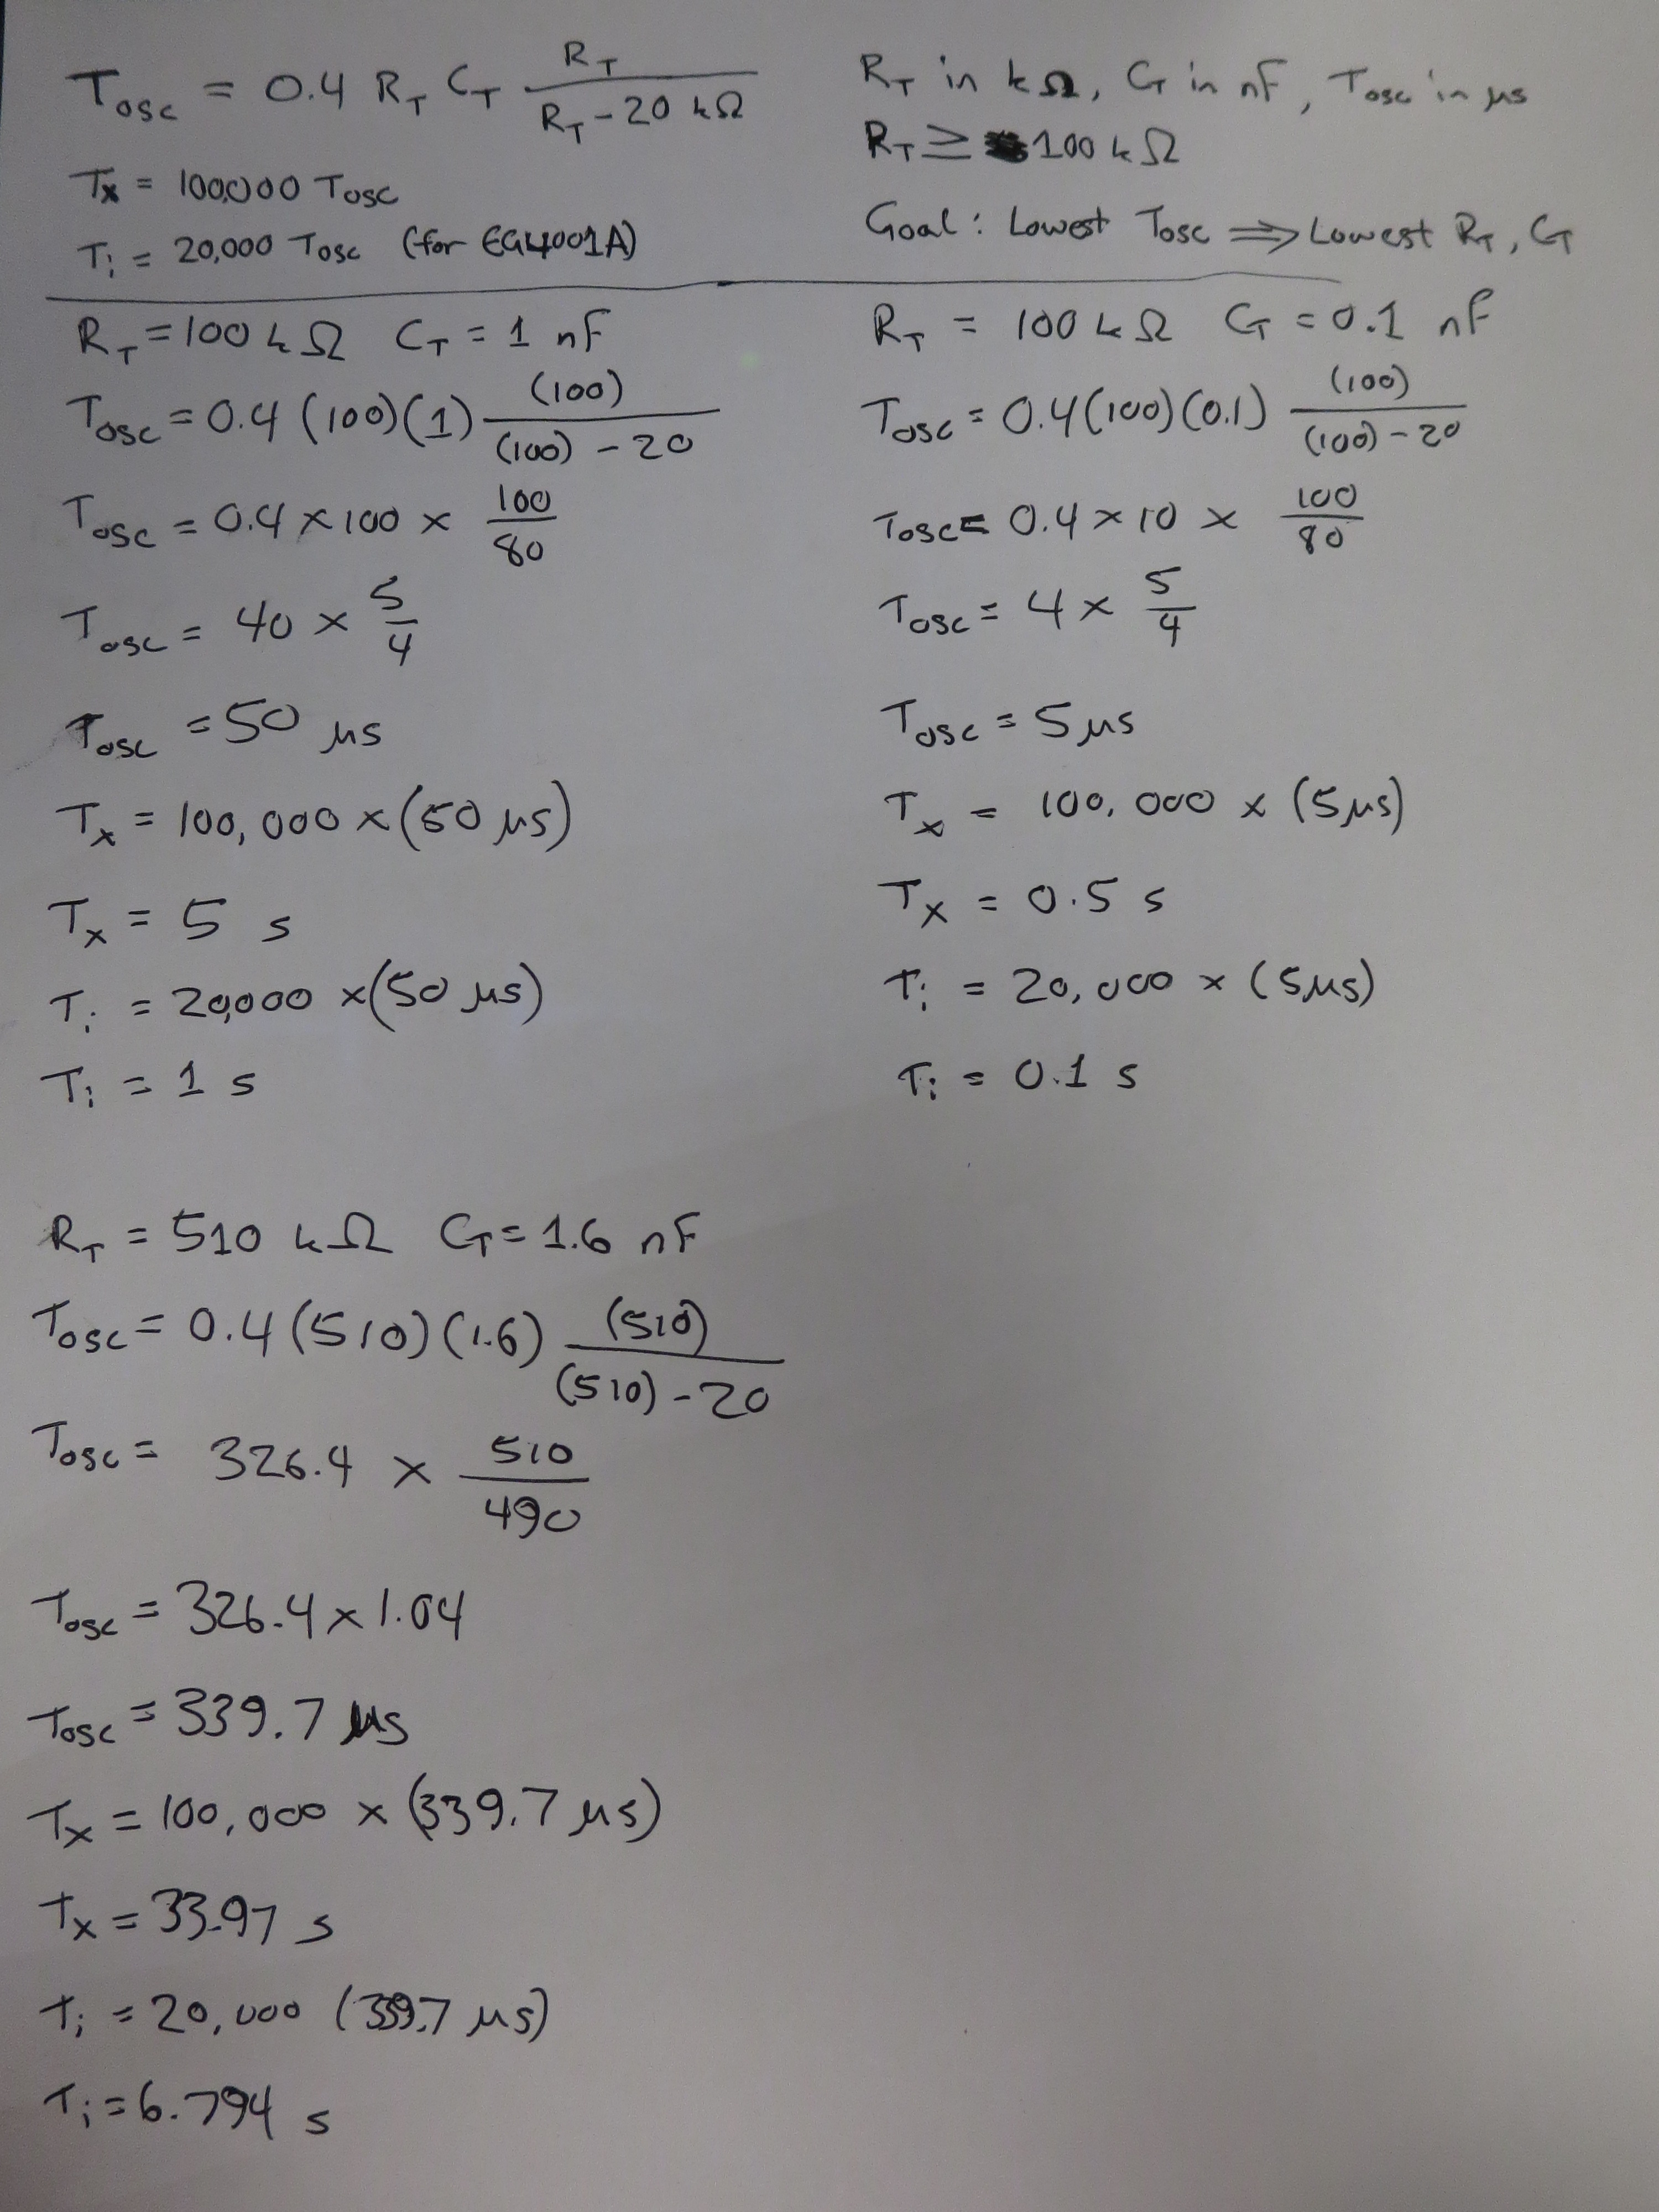 T_osc = 0.4 R_T C_T R_T / (R_T - 20 kΩ)
T_x = 100,000 T_osc
T_i = 20,000 T_osc (for EG4001A)
R_T in kΩ, C_T in nF, T_osc in μs
R_T ≥ 100 kΩ
Goal: Lowest T_osc ⇒ Lowest R_T, C_T
R_T = 100 kΩ C_T = 1 nF
T_osc = 0.4 (100)(1) (100) / ((100) - 20)
T_osc = 0.4 × 100 × 100/80
T_osc = 40 × 5/4
T_osc = 50 μs
T_x = 100,000 × (50 μs)
T_x = 5 s
T_i = 20,000 × (50 μs)
T_i = 1 s
R_T = 100 kΩ C_T = 0.1 nF
T_osc = 0.4 (100)(0.1) (100) / ((100) - 20)
T_osc = 0.4 × 10 × 100/80
T_osc = 4 × 5/4
T_osc = 5 μs
T_x = 100,000 × (5 μs)
T_x = 0.5 s
T_i = 20,000 × (5 μs)
T_i = 0.1 s
R_T = 510 kΩ C_T = 1.6 nF
T_osc = 0.4 (510)(1.6) (510) / ((510) - 20)
T_osc = 326.4 × 510/490
T_osc = 326.4 × 1.04
T_osc = 339.7 μs
T_x = 100,000 × (339.7 μs)
T_x = 33.97 s
T_i = 20,000 (339.7 μs)
T_i = 6.794 s